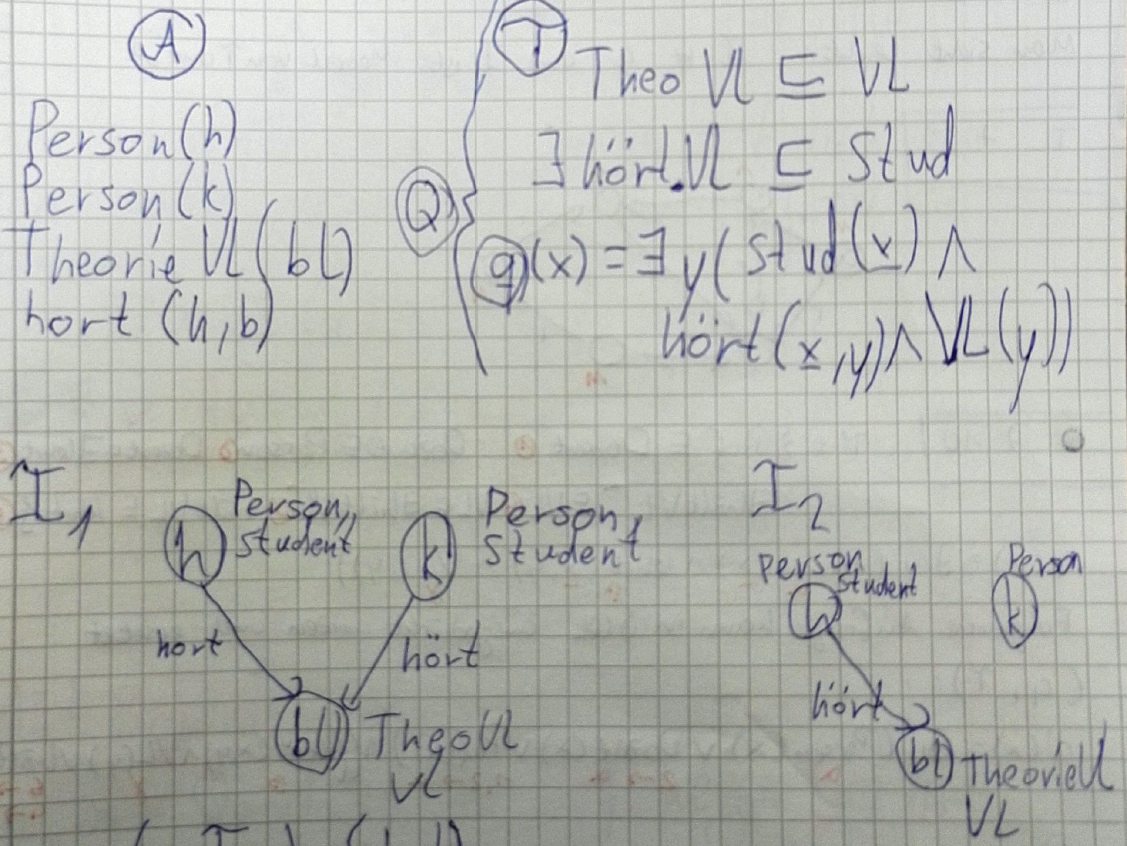 A
Person(h)
Person(k)
Theorie VL(bl)
hort (h,b)
T
Theo Vl ⊑ VL
∃ hört.VL ⊑ Stud
Q
q(x) = ∃ y( Stud(x) ∧
hört(x,y) ∧ VL(y))
I1
Person,
student
h
Person,
Student
k
hort
hört
bl
TheoVl
VL
I2
Person
student
h
Person
k
hört
bl
TheorieVl
VL